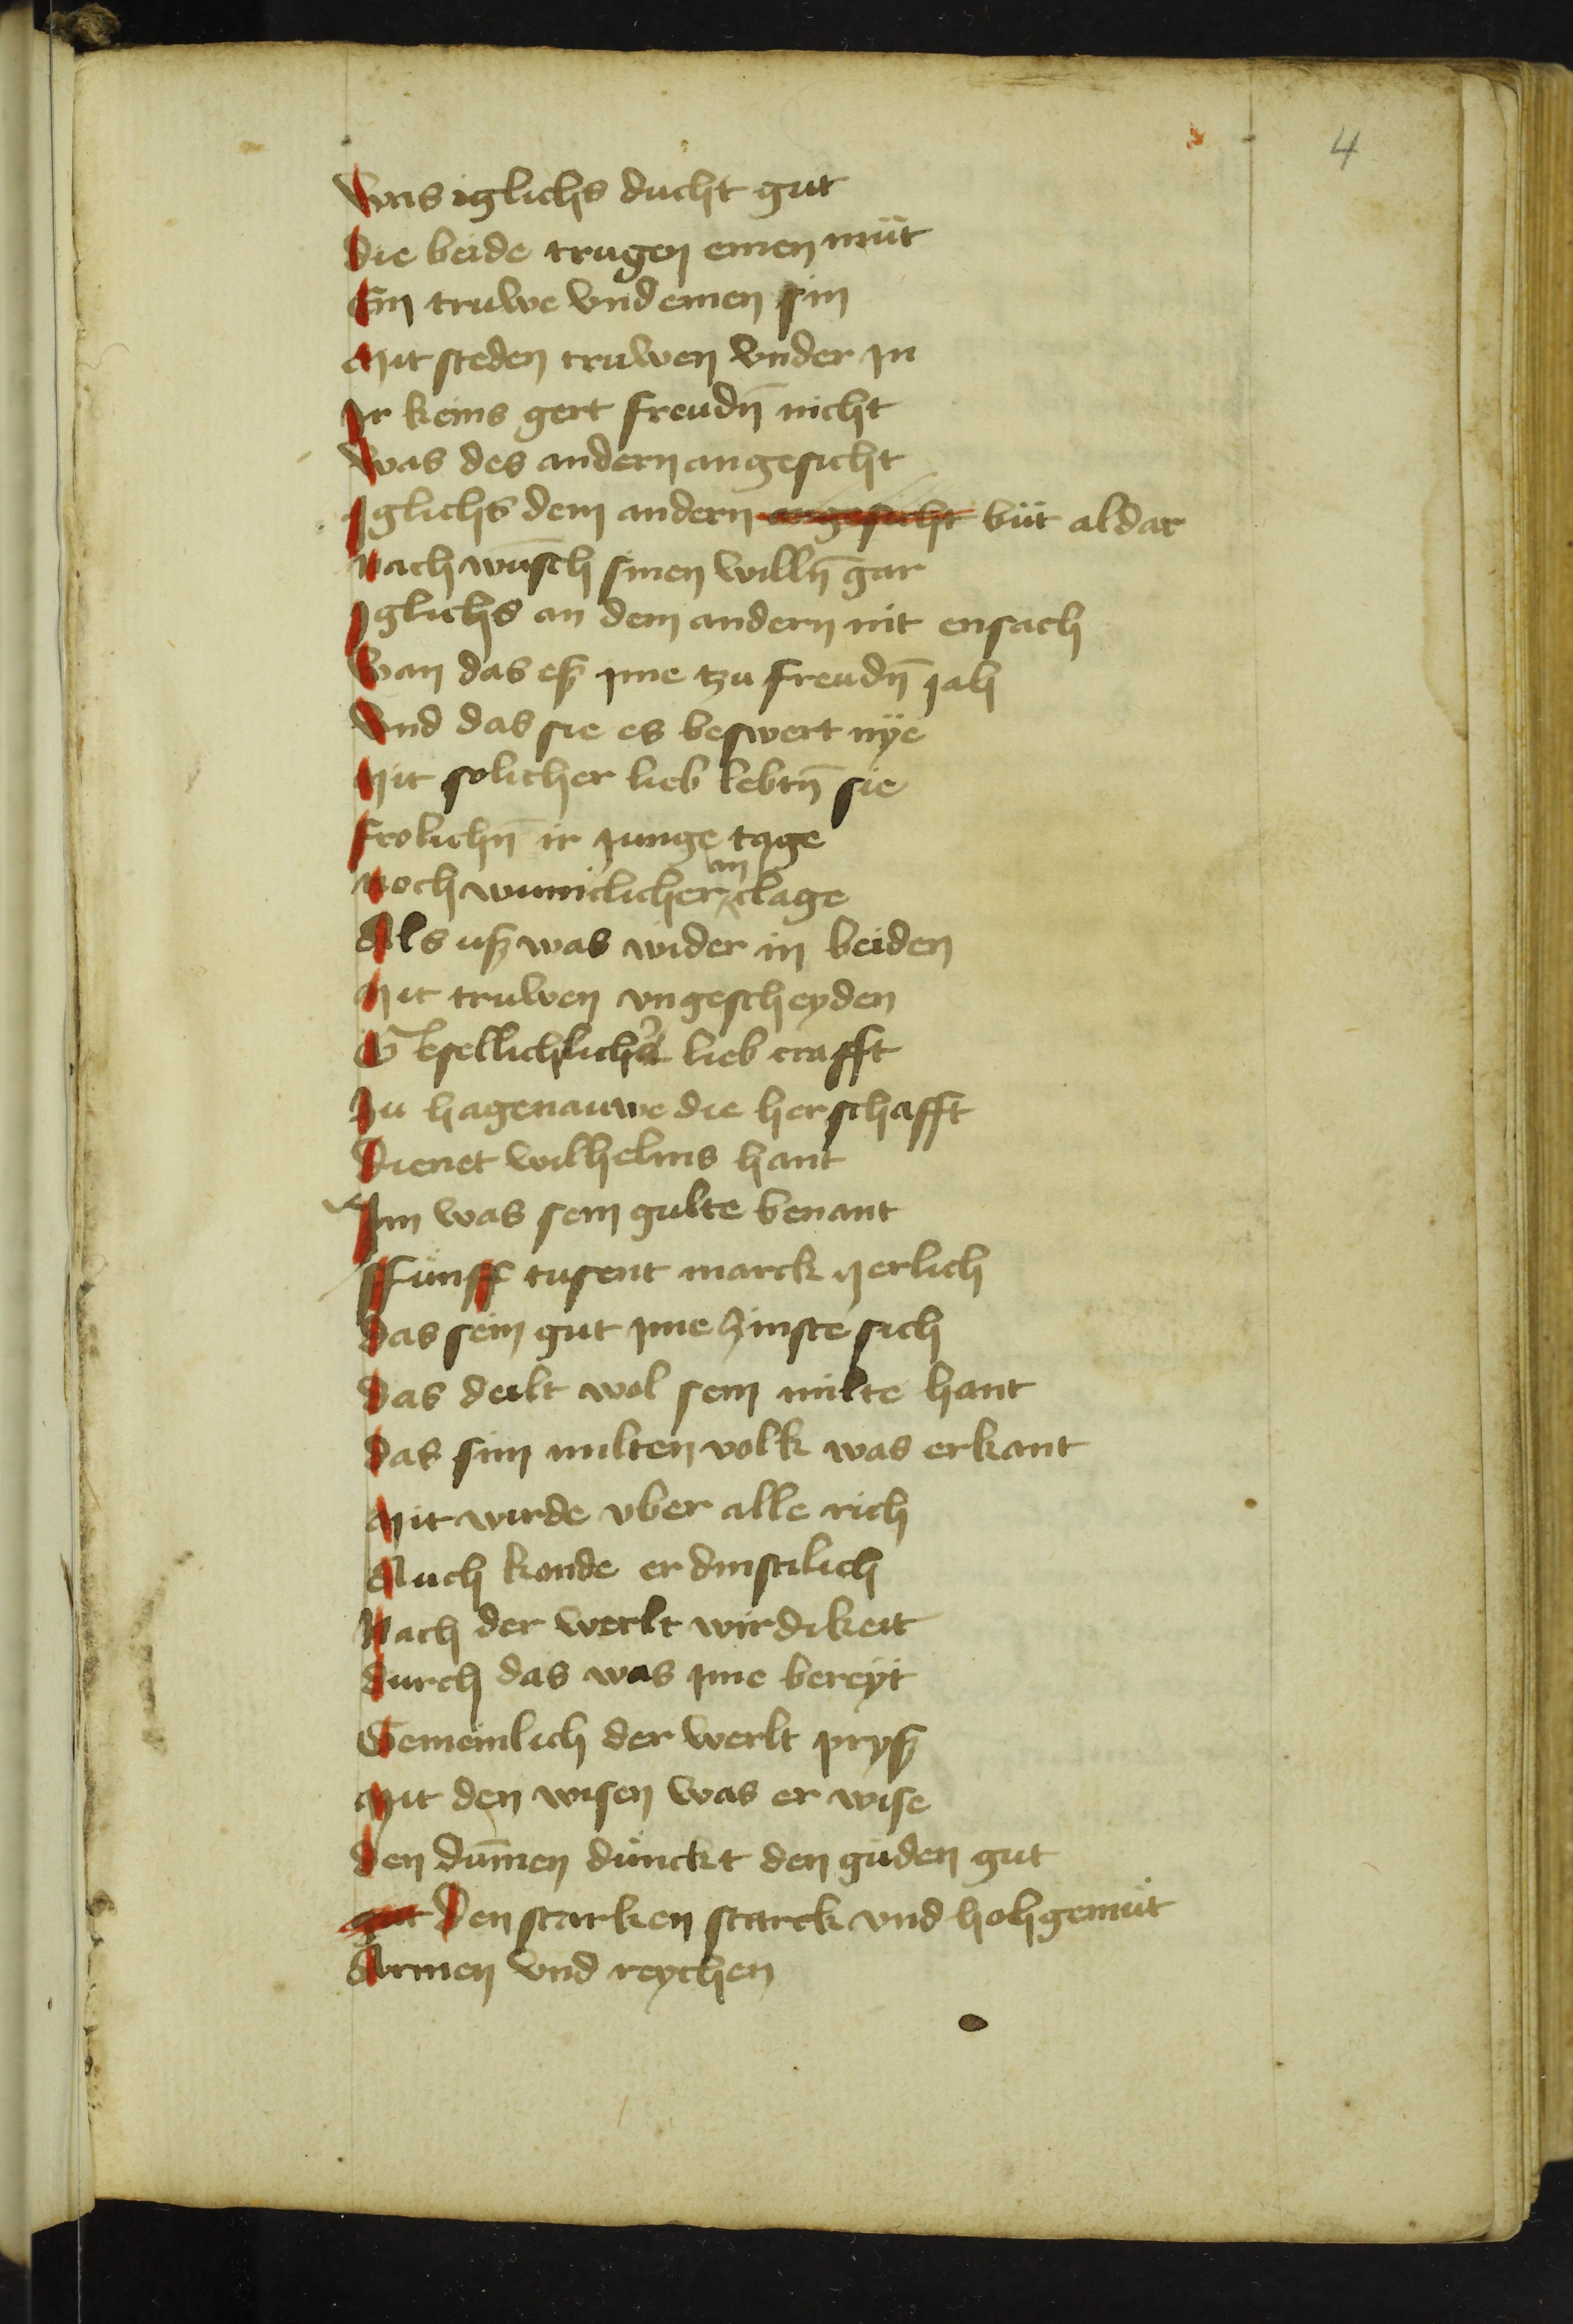 4
Was iglichs ducht gut
Die beide trugen einen müt
Ein truwe vnd einen sin
Mit steden truwen vnder jn
Jr keins gert freudn̄ nicht
Was des andern angesicht
Jglichs dem andern angesicht büt aldar
Nach wūsch sinen willn̄ gar
Jglichs an dem andern nit ensach
Wan das eß jme tzu freudn̄ jah
Vnd das sie es beswert nÿe
Mit solicher lieb lebtn̄ sie
Frolichn̄ ir junge tage
Noch wūniclicher an clage
Als uß was wider in beiden
Mit truwen vngescheyden
Gesellichlicher lieb crafft
Zu hagenauwe die herschafft
Dienet wilhelms hant
Jm was sein gulte benant
Ffünff tusent marck herlich
Das sein gut jme zinste sich
Das deilt wol sein milte hant
Das sim milten volk was erkant
Mit wirde vber alle rich
Auch konde er dinstlich
Nach der werlt wirdikeit
Durch das was jme bereÿt
Gemeinlich der werlt pryß
Mit den wisen was er wise
Den dūmen dünckt den güden gut
gut Den starken starck vnd hohgemüt
Armen vnd reychen